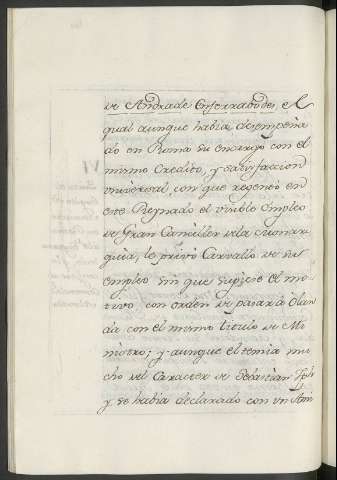 de Andrade Enserrabodes, el
qual aunque habia desempeña
do en Roma su encargo con el
mismo Credito, y satisfaccion
universal, con que regentò en
este Reynado el visible empleo
de Gran Canciller de la Monar
quia, le privò Carvallo de su
empleo sin que supiese el mo
tivo, con orden de pasar à Olan
da con el mismo titulo de Mi
nistro; y aunque el temia mu
cho del Caracter de Sebastian Jph
y se habia declarado con un Am